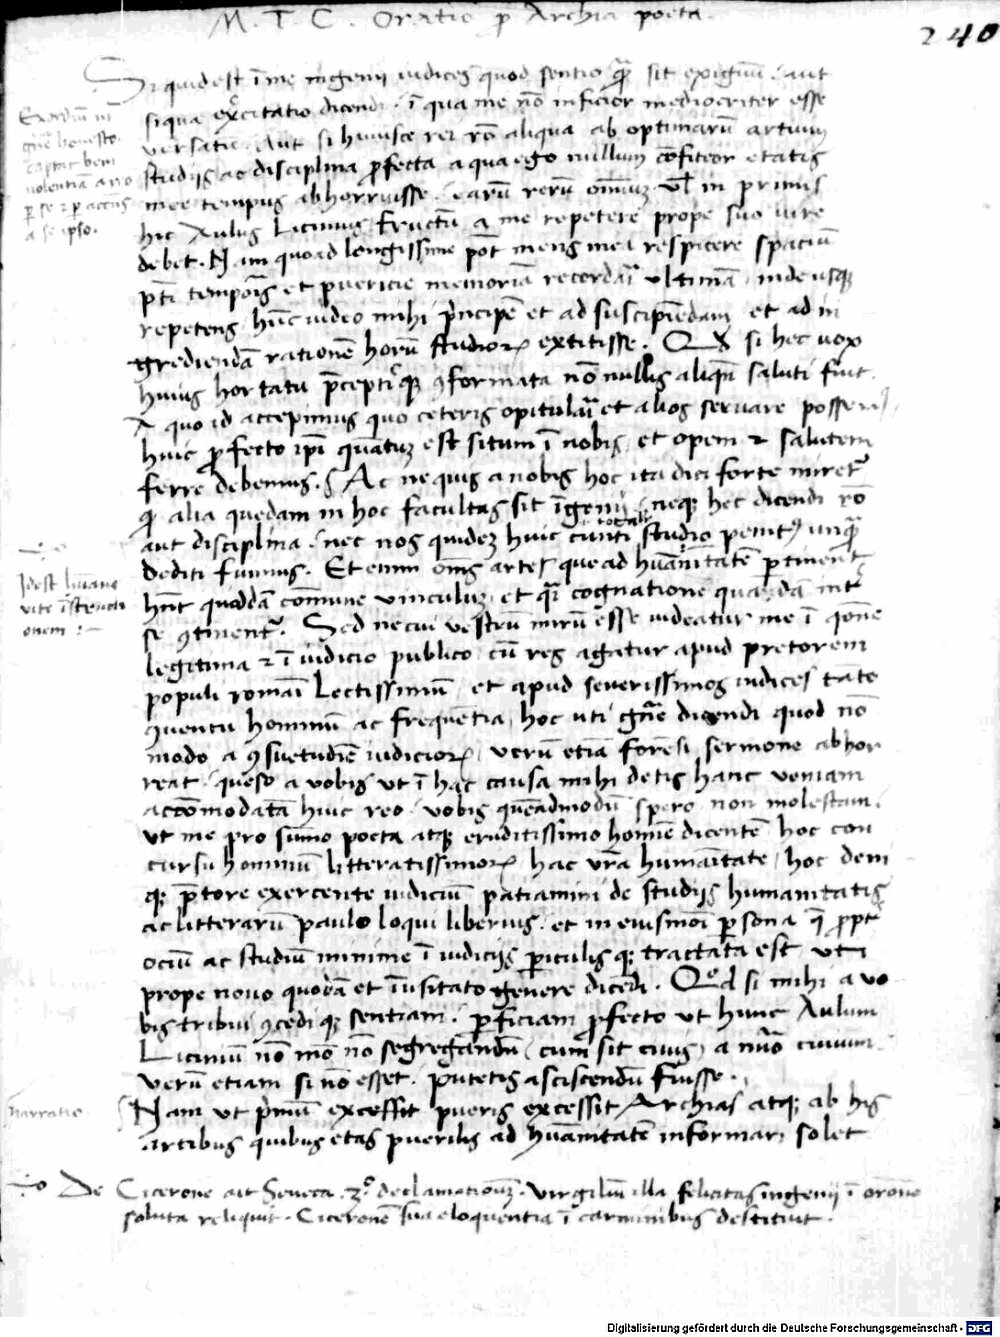 M. T. C. Oratio p Archia poeta.
240
Si quid est ī me ingenii iudices quod sentio q̄ sit exiguū. aut
Exordiū in
siqua exercitatio dicendi. ī qua me nō inficior mediocriter esse
gn̄e honesto.
versatū. Aut si huiusce rei rō aliqua ab optimarū artium
captat beni
studijs ac disciplina pfecta a qua ego nullum cōfiteor etatis
uolentiā a reo
mee tempus abhorruisse. earū rerū omniuz vl' in primis
p se et p accn̄s
hic Aulus Licinius fructū a me repetere prope suo iure
a se ipso.
debet. Nam quoad longissime pōt mens mea respicere spaciū
pt̄i tempoīs et puericie memoriā recordaī vltimā inde usq;
repetens hūc uideo mihi p̄ncipē et ad suscipiēdam et ad in
grediendā rationē horū studioꝝ extitisse. Qd̄ si hec uox
huius hortatu p̄ceptisq; 9formata nō nullis aliqn̄ saluti fuit.
A quo id accepimus quo ceteris opitulaī et alios seruare possem9,
huic pfecto ip̄i quātuz est situm ī nobis, et opem et salutem
ferre debemus. Ac ne quis a nobis hoc ita dici forte miret᷑
q alia quedam in hoc facultas sit īgenij. neq; hec dicendi rō
aut disciplina. nec nos quidez huic cuncti studio penit9 unq̄
dediti fuimus. Etenim om̄s artes que ad hūanitatē ptinent
Idest hūane
hn̄t quoddā cōmune vinculuz. et q̄i cognatione quadā int̄
vite īstructi
se 9tinent᷑. Sed ne cui vestrū mirū esse uideatur me ī qōne
onem :~
legitima et ī iudicio publico, cū res agatur apud pretorem
populi romāi Lectissimū, et apud seuerissimos iudices tāto
9uentu hominū ac frequētia, hoc uti gn̄e dicendi quod nō
modo a 9suetudīe iudicioꝝ, verū etiā forēsi sermone abhor
reat. queso a vobis vt ī hac causa mihi detis hanc veniam
accōmodatā huic reo. vobis quēadmodū spero non molestam.
vt me pro sūmo poeta atq; eruditissimo homīe dicentē hoc con
cursu hominū litteratissimoꝝ, hac vr̄a humāitate, hoc deni
q; p̄tore exercente iudiciū patiamini de studijs humanitatis
ac litterarū paulo loqui liberius. et in eiusmōi psona q̄ ppt᷑
ociū ac studiū minime ī iudicijs piculis q; tractata est, vti
prope nouo quodā et īusitato genere dicēdi. Qd̄ si mihi a vo
bis tribui 9cēdi q; sentiam. pficiam pfecto vt hunc Aulum
Liciniū nō mō nō segregandū, cum sit ciuis, a nūo ciuium.
verū etiam si nō esset. putetis asciscendū fuisse.
narratio
Nam vt p̄mū ex pueris excessit Archias atq; ab his
artibus quibus etas puerilis ad hūanitatē informari solet
De Cicerone ait Seneca. 3º declamationuz. Virgiliū illa felicitas ingenij ī orōne
soluta reliquit. Ciceronē sua eloquentia ī carminibus destituit.
Digitalisierung gefördert durch die Deutsche Forschungsgemeinschaft - DFG